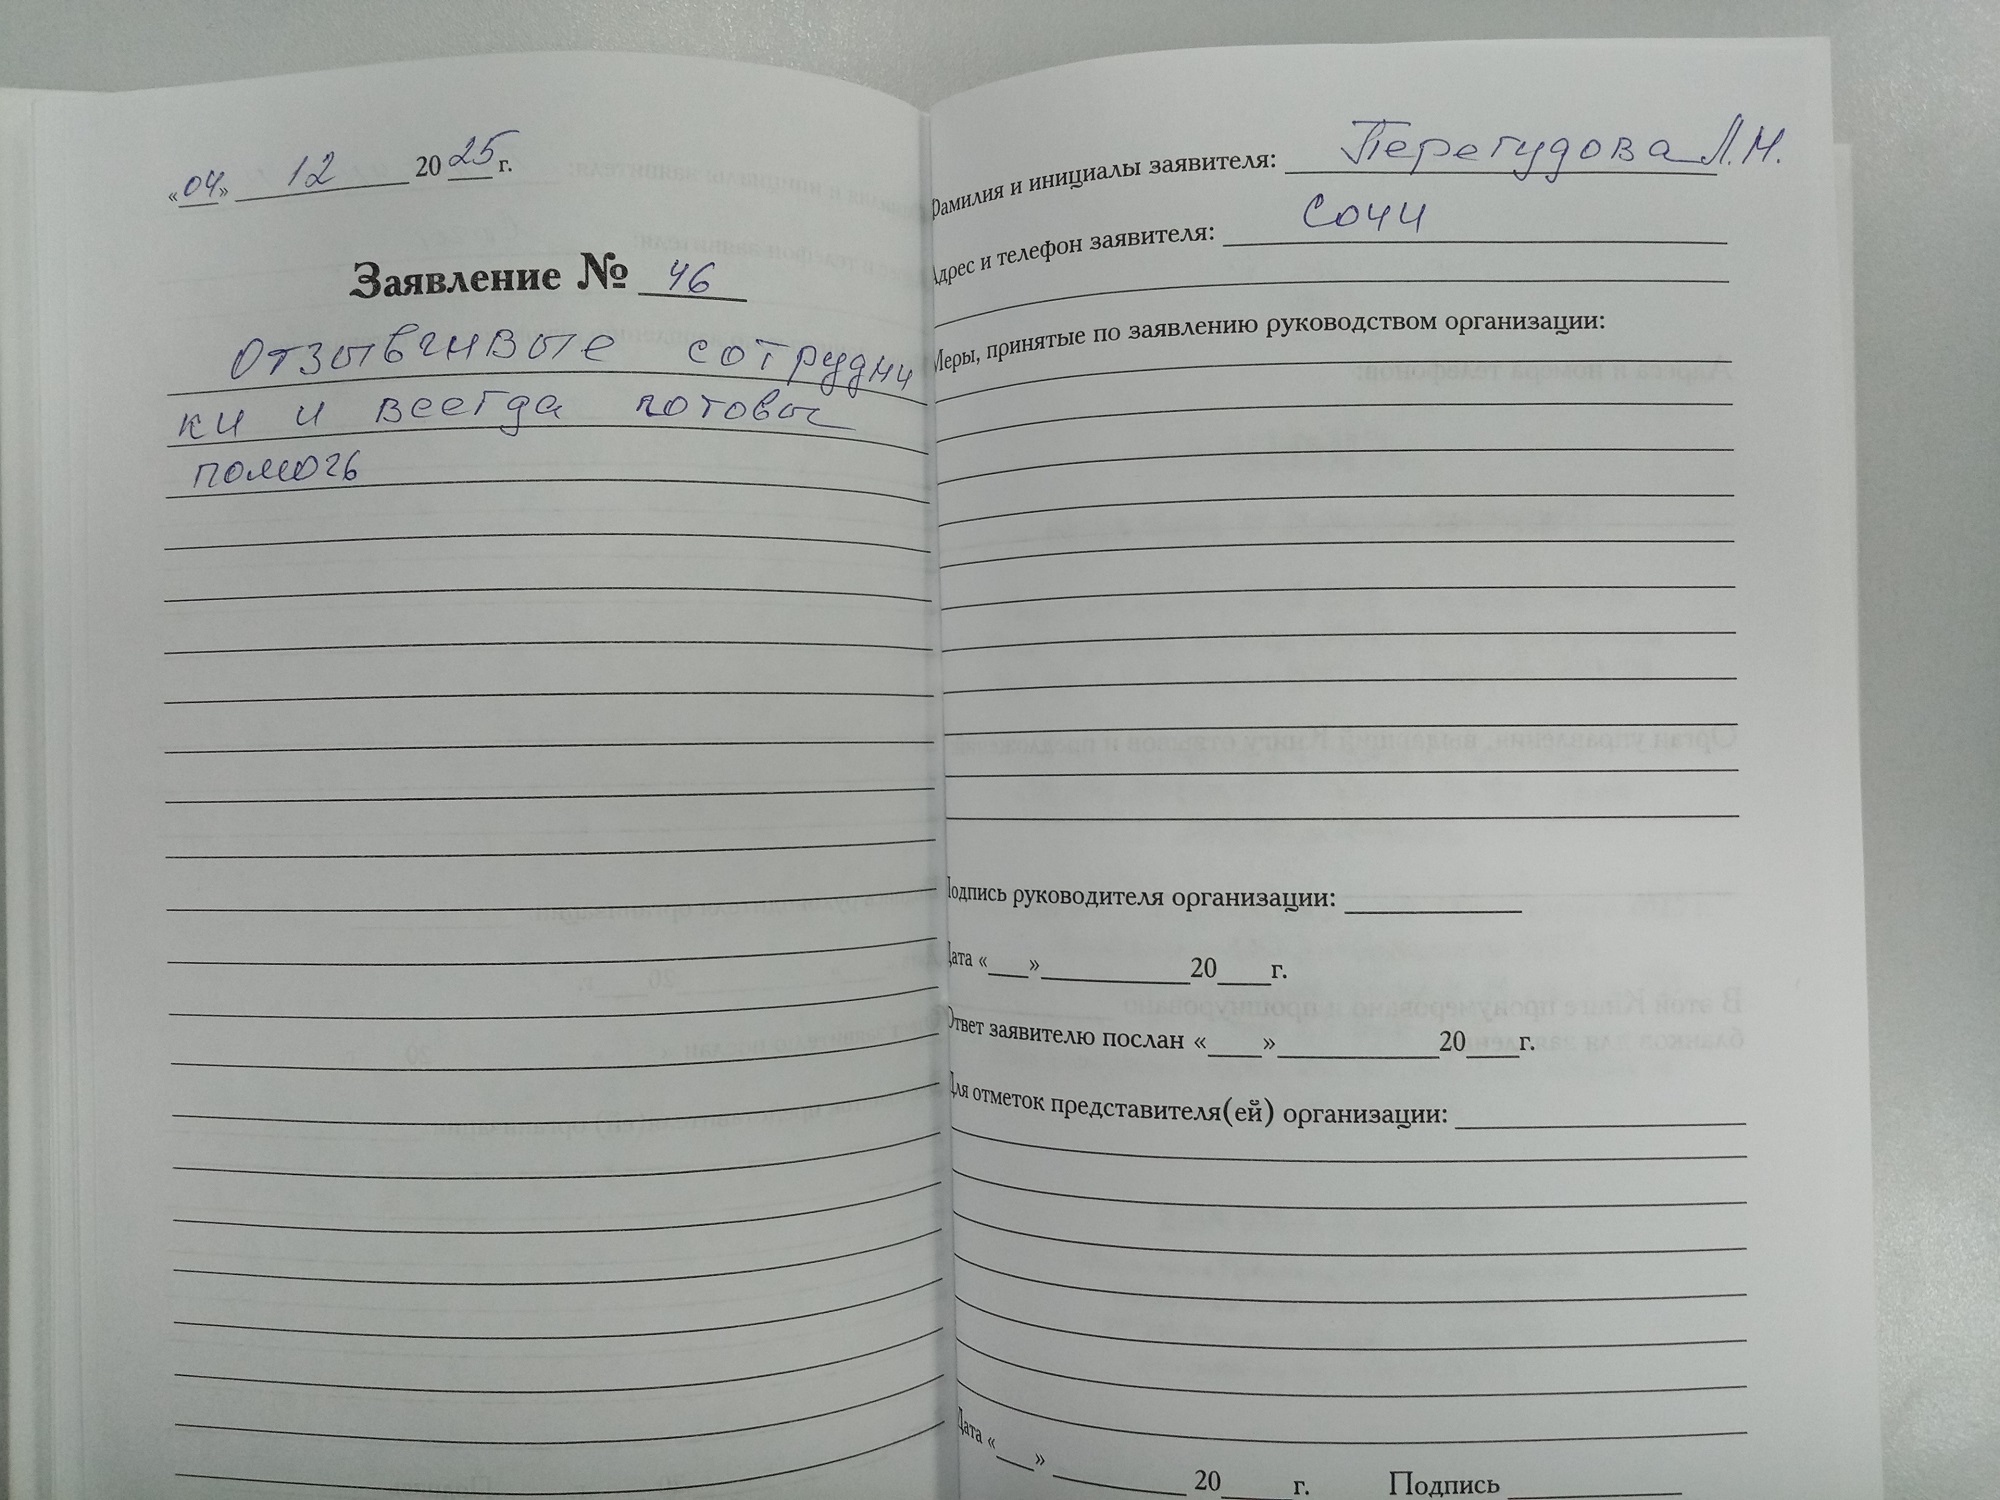 «04» 12 2025 г.
Заявление № 46
Отзывчивые сотрудни
ки и всегда готовы
помочь
Фамилия и инициалы заявителя: Перегудова Л.М.
Адрес и телефон заявителя: Сочи
Меры, принятые по заявлению руководством организации:
Подпись руководителя организации:
Дата «___»___________20____г.
Ответ заявителю послан «____»____________20____г.
Для отметок представителя(ей) организации:
Дата «___» __________ 20____ г. Подпись